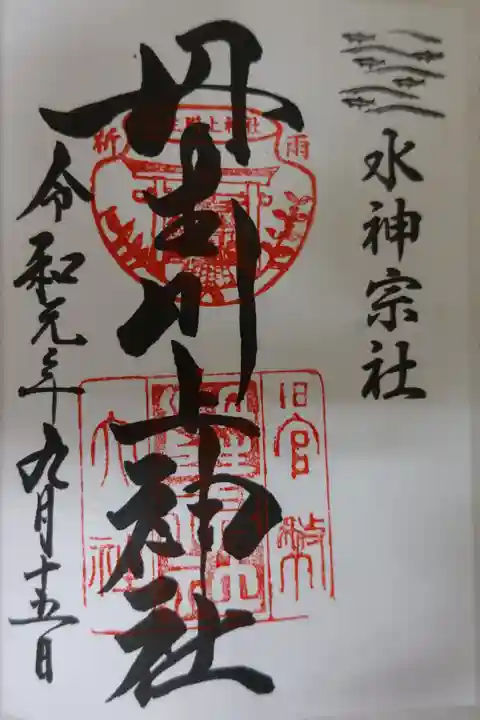 水神宗社
丹生川上神社
丹生川上神社
祈
雨
旧官幣
大社
令和元年九月十五日